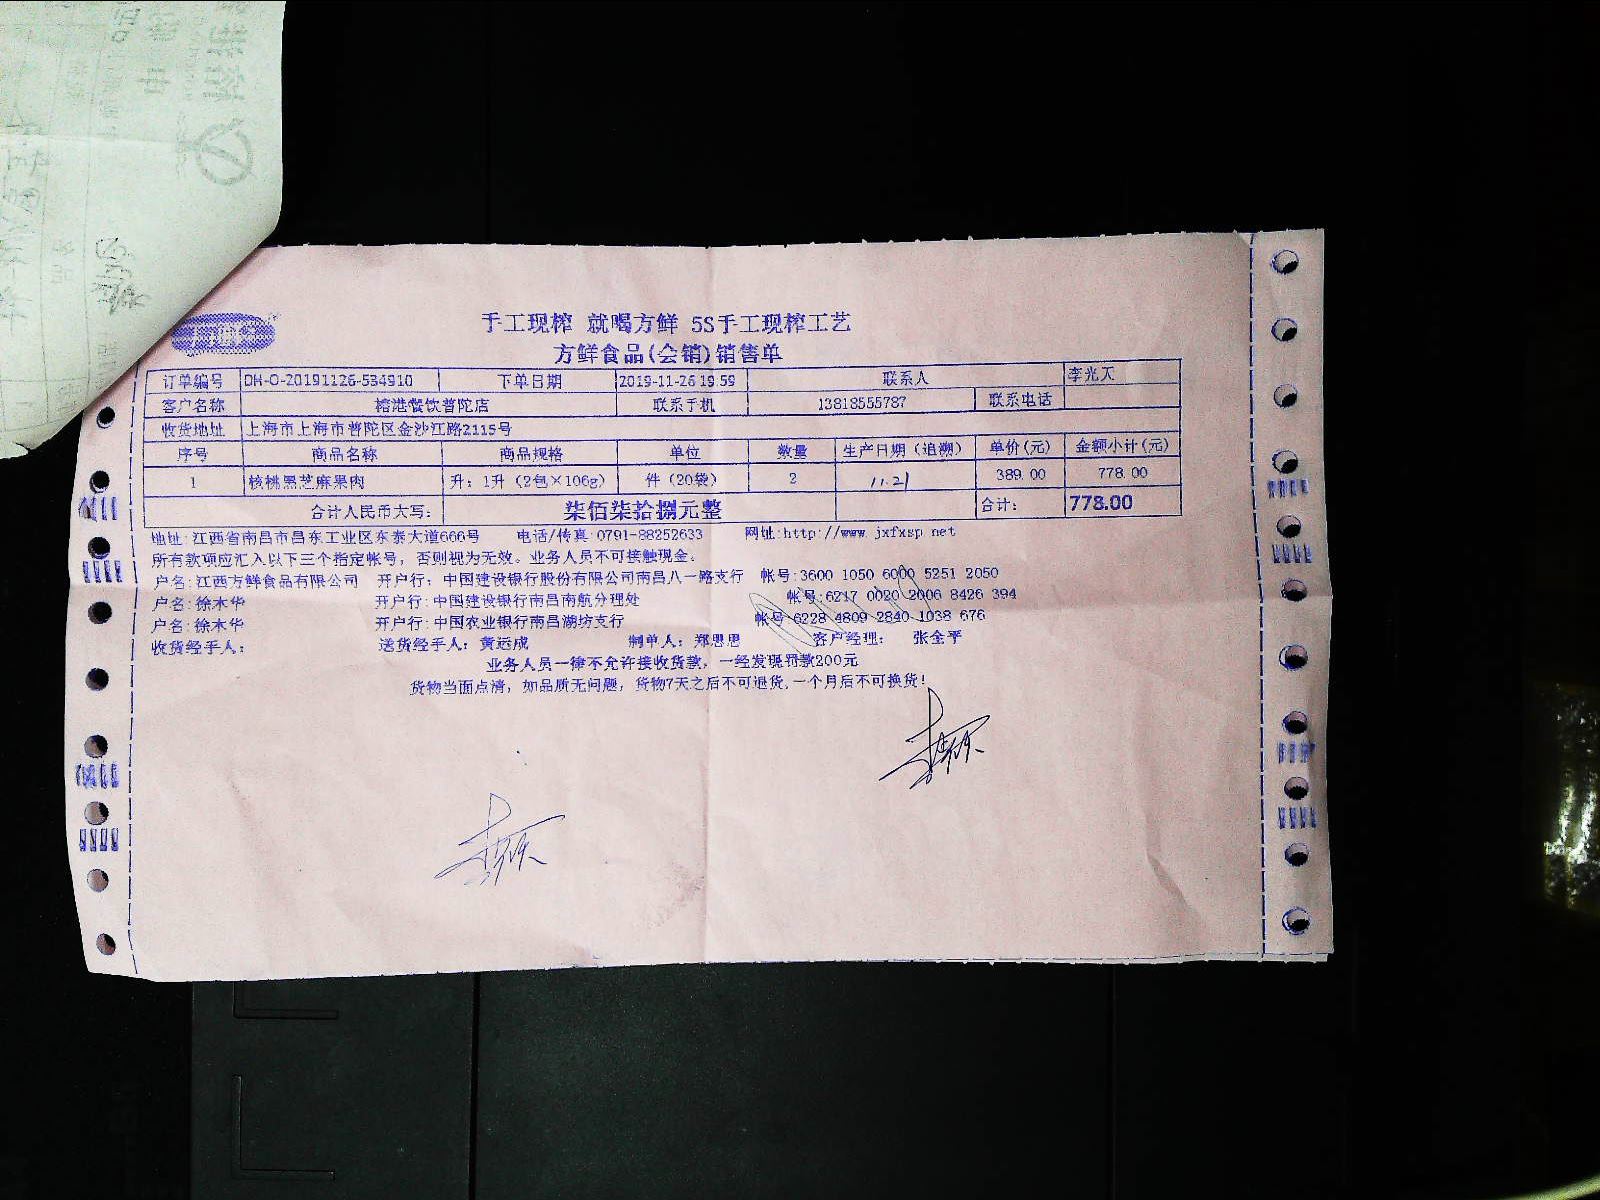 手工现榨 就喝方鲜 5S手工现榨工艺
方鲜食品(会销)销售单
订单编号 DH-O-20191126-534910 下单日期 2019-11-26 19:59 联系人 李光天
客户名称 榕港餐饮普陀店 联系手机 13818555787 联系电话
收货地址 上海市上海市普陀区金沙江路2115号
序号 商品名称 商品规格 单位 数量 生产日期（追溯） 单价(元) 金额小计(元)
1 核桃黑芝麻果肉 升：1升（2包×106g） 件（20袋） 2 11.21 389.00 778.00
合计人民币大写： 柒佰柒拾捌元整 合计： 778.00
地址:江西省南昌市昌东工业区东泰大道666号 电话/传真:0791-88252633 网址:http://www.jxfxsp.net
所有款项应汇入以下三个指定帐号，否则视为无效。业务人员不可接触现金。
户名:江西方鲜食品有限公司 开户行：中国建设银行股份有限公司南昌八一路支行 帐号:3600 1050 6000 5251 2050
户名:徐木华 开户行:中国建设银行南昌南航分理处 帐号:6217 0020 2006 8426 394
户名:徐木华 开户行:中国农业银行南昌湖坊支行 帐号:6228 4809 2840 1038 676
收货经手人： 送货经手人：黄运成 制单人：郑思思 客户经理： 张全平
业务人员一律不允许接收货款，一经发现罚款200元
货物当面点清，如品质无问题，货物7天之后不可退货,一个月后不可换货！